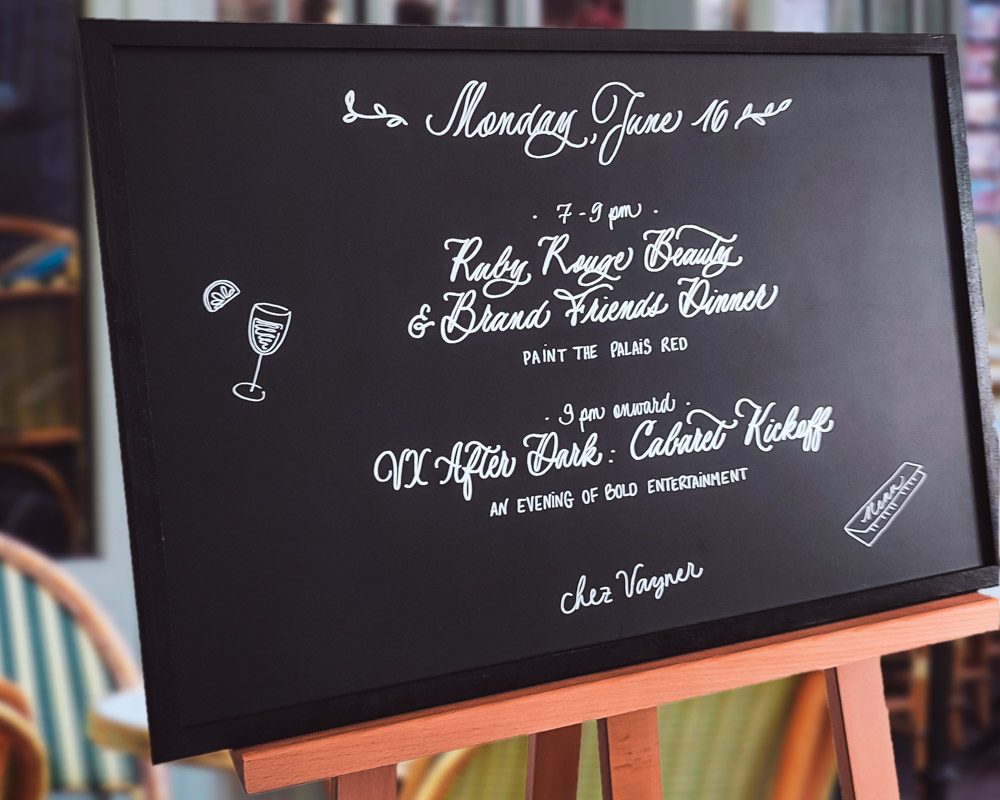 Monday, June 16
· 7-9 pm ·
Ruby Rouge Beauty
& Brand Friends Dinner
PAINT THE PALAIS RED
· 9 pm onward ·
VX After Dark: Cabaret Kickoff
AN EVENING OF BOLD ENTERTAINMENT
Menu
chez Vayner